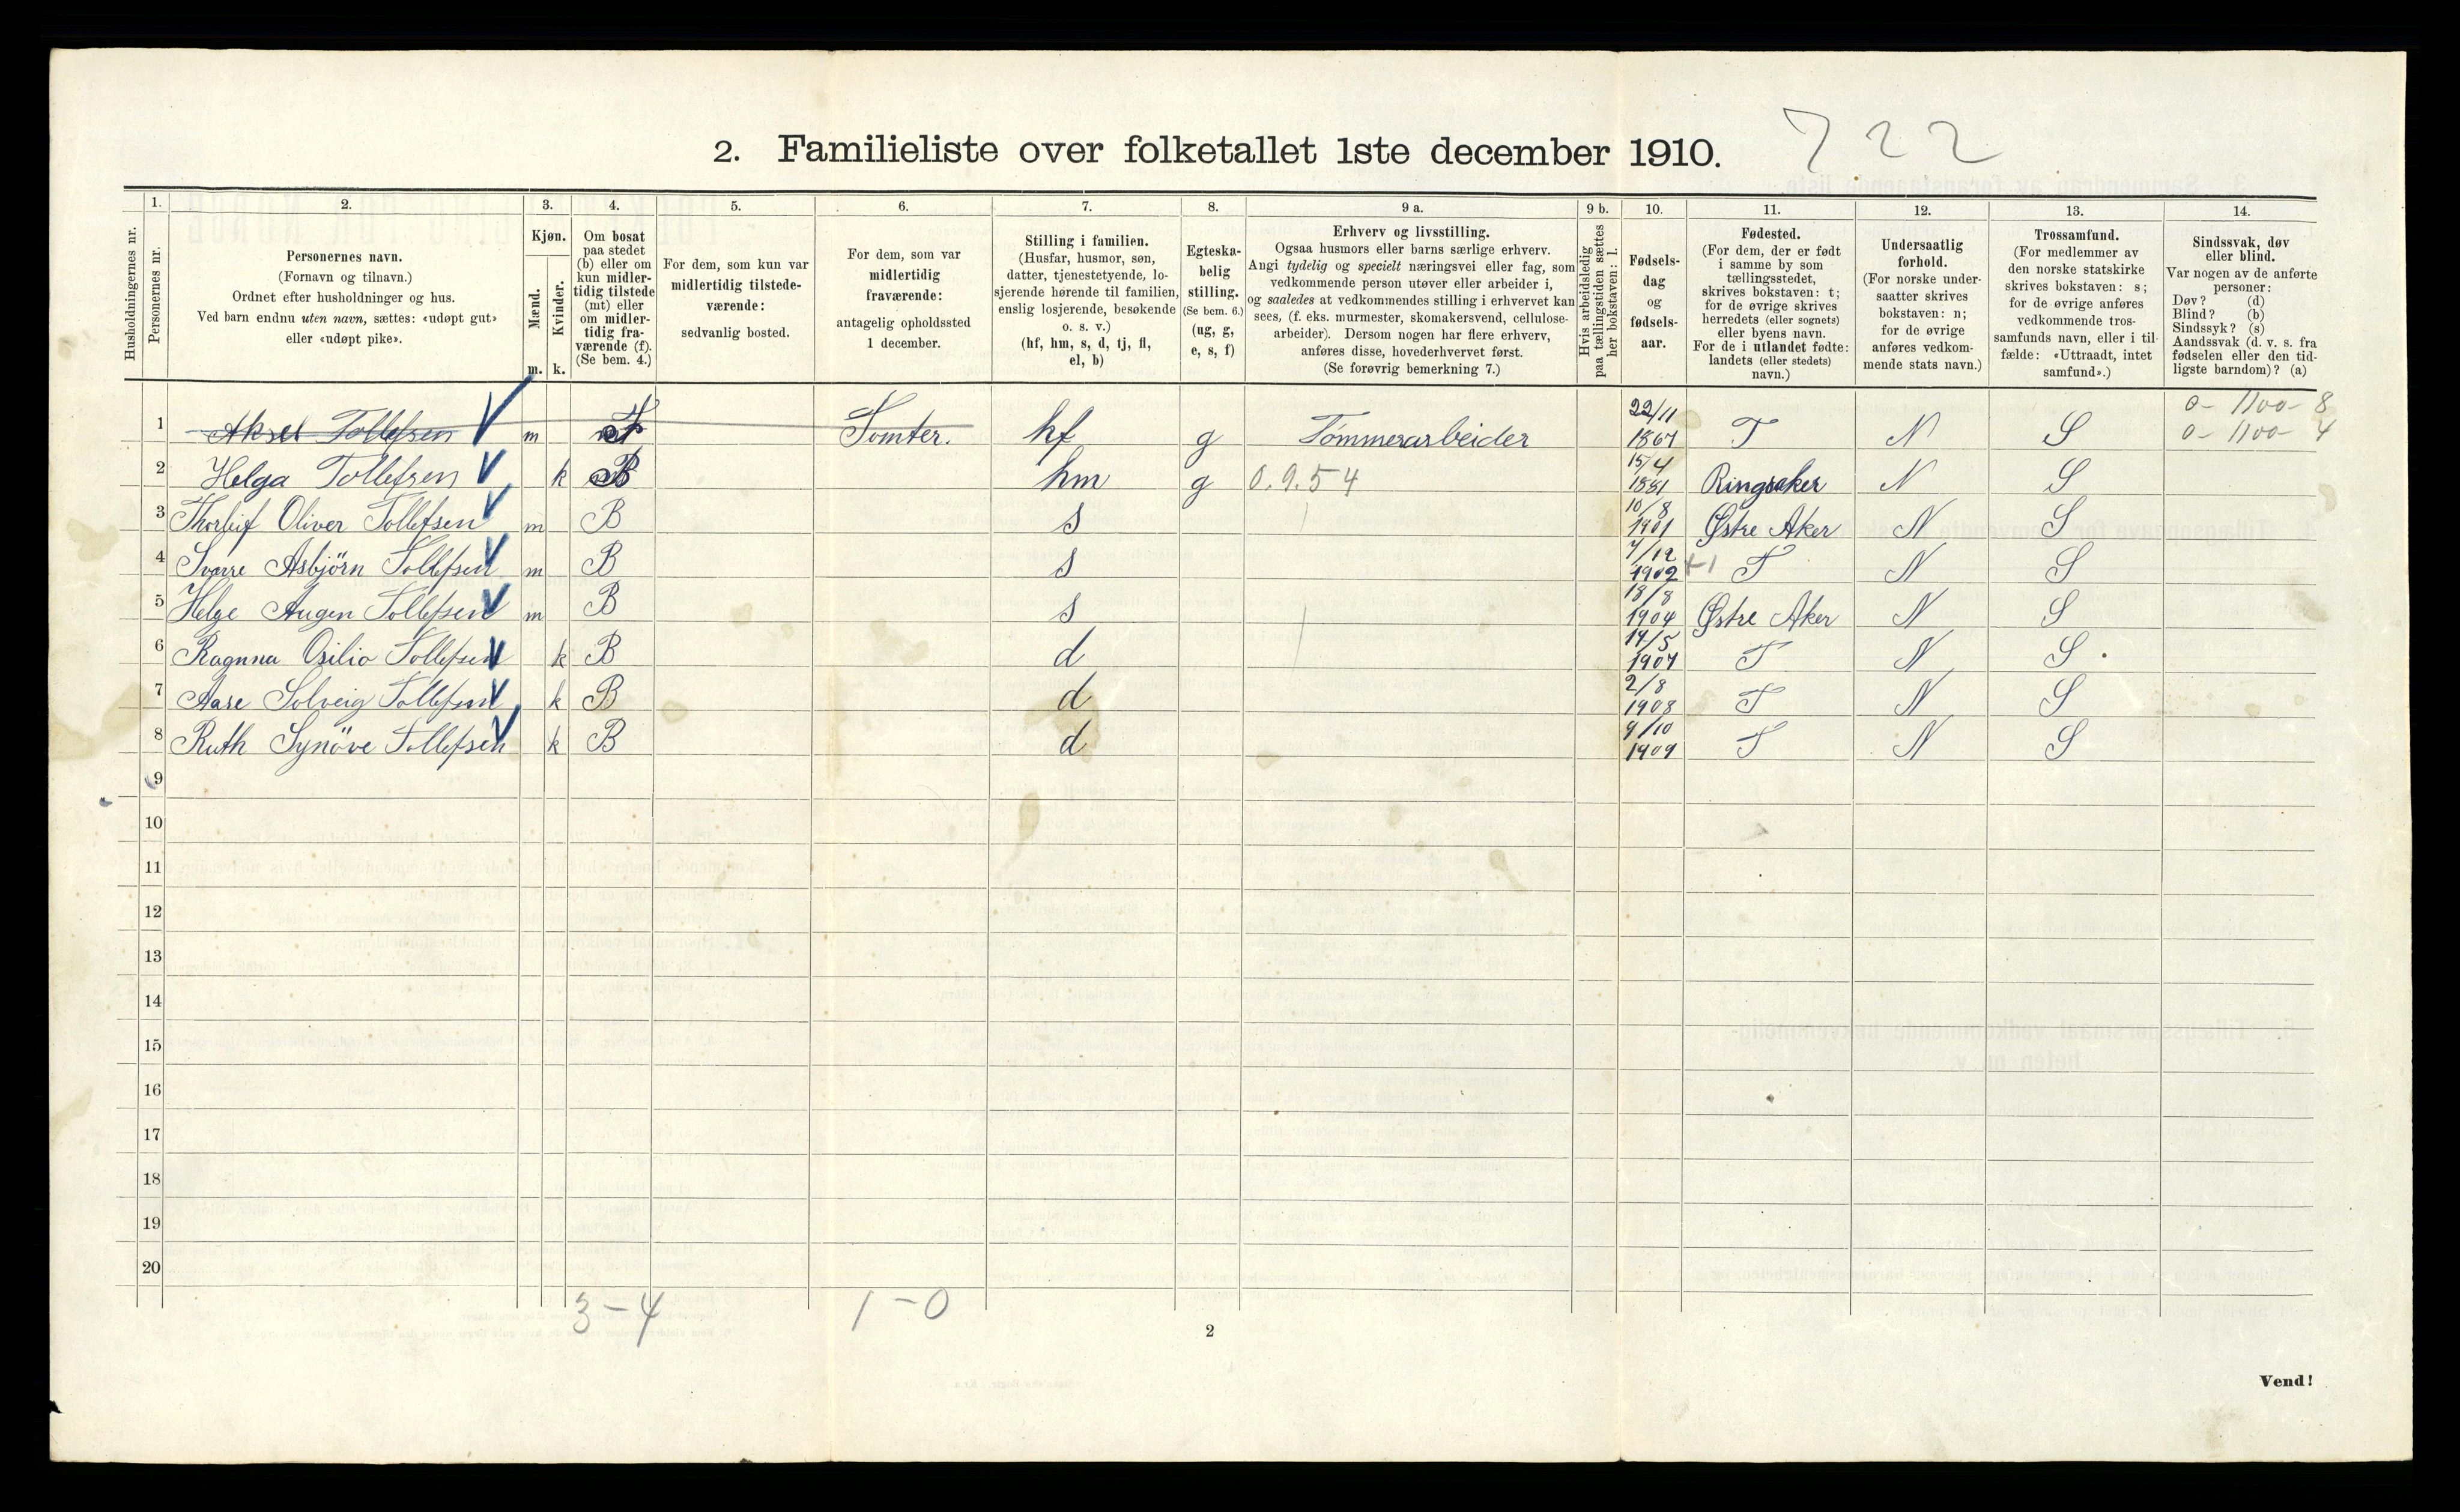 2. Familieliste over folketallet 1ste december 1910. 722
Husholdningernes nr.
1.
Personernes nr.
2.
Personernes navn.
(Fornavn og tilnavn.)
Ordnet efter husholdninger og hus.
Ved barn endnu uten navn, sættes: «udøpt gut»
eller «udøpt pike».
3.
Kjøn.
Mænd.
Kvinder.
m. k.
4.
Om bosat
paa stedet
(b) eller om
kun midler-
tidig tilstede
(mt) eller
om midler-
tidig fra-
værende (f).
(Se bem. 4.)
5.
For dem, som kun var
midlertidig tilstede-
værende:
sedvanlig bosted.
6.
For dem, som var
midlertidig
fraværende:
antagelig opholdssted
1 december.
7.
Stilling i familien.
(Husfar, husmor, søn,
datter, tjenestetyende, lo-
sjerende hørende til familien,
enslig losjerende, besøkende
o. s. v.)
(hf, hm, s, d, tj, fl,
el, b)
8.
Egteska-
belig
stilling.
(Se bem. 6.)
(ug, g,
e, s, f)
9 a.
Erhverv og livsstilling.
Ogsaa husmors eller barns særlige erhverv.
Angi tydelig og specielt næringsvei eller fag, som
vedkommende person utøver eller arbeider i,
og saaledes at vedkommendes stilling i erhvervet kan
sees, (f. eks. murmester, skomakersvend, cellulose-
arbeider). Dersom nogen har flere erhverv,
anføres disse, hovederhvervet først.
(Se forøvrig bemerkning 7.)
9 b.
Hvis arbeidsledig
paa tællingstiden sættes
her bokstaven: l.
10.
Fødsels-
dag
og
fødsels-
aar.
11.
Fødested.
(For dem, der er født
i samme by som
tællingsstedet,
skrives bokstaven: t;
for de øvrige skrives
herredets (eller sognets)
eller byens navn.
For de i utlandet fødte:
landets (eller stedets)
navn.)
12.
Undersaatlig
forhold.
(For norske under-
saatter skrives
bokstaven: n;
for de øvrige
anføres vedkom-
mende stats navn.)
13.
Trossamfund.
(For medlemmer av
den norske statskirke
skrives bokstaven: s;
for de øvrige anføres
vedkommende tros-
samfunds navn, eller i til-
fælde: «Uttraadt, intet
samfund».)
14.
Sindssvak, døv
eller blind.
Var nogen av de anførte
personer:
Døv? (d)
Blind? (b)
Sindssyk? (s)
Aandssvak (d. v. s. fra
fødselen eller den tid-
ligste barndom)? (a)
0- 1100- 8
0- 1100- 4
1 Aksel Tollefsen m f Tomter. hf g Tømmerarbeider 22/11 1867 T N S
2 Helga Tollefsen k B hm g 0.9.54 15/4 1881 Ringsaker N S
3 Thorleif Oliver Tollefsen m B s 10/8 1901 Østre Aker N S
4 Sverre Asbjörn Tollefsen m B s 7/12 1902 +1 T N S
5 Helge Augen Tollefsen m B s 18/8 1904 Østre Aker N S
6 Ragnna Osilio Tollefsen k B d 14/5 1907 T N S
7 Aase Solveig Tollefsen k B d 2/8 1908 T N S
8 Ruth Synöve Tollefsen k B d 9/10 1909 T N S
9
10
11
12
13
14
15
16
17
18
19
20
3-4 1-0
2
Vend!